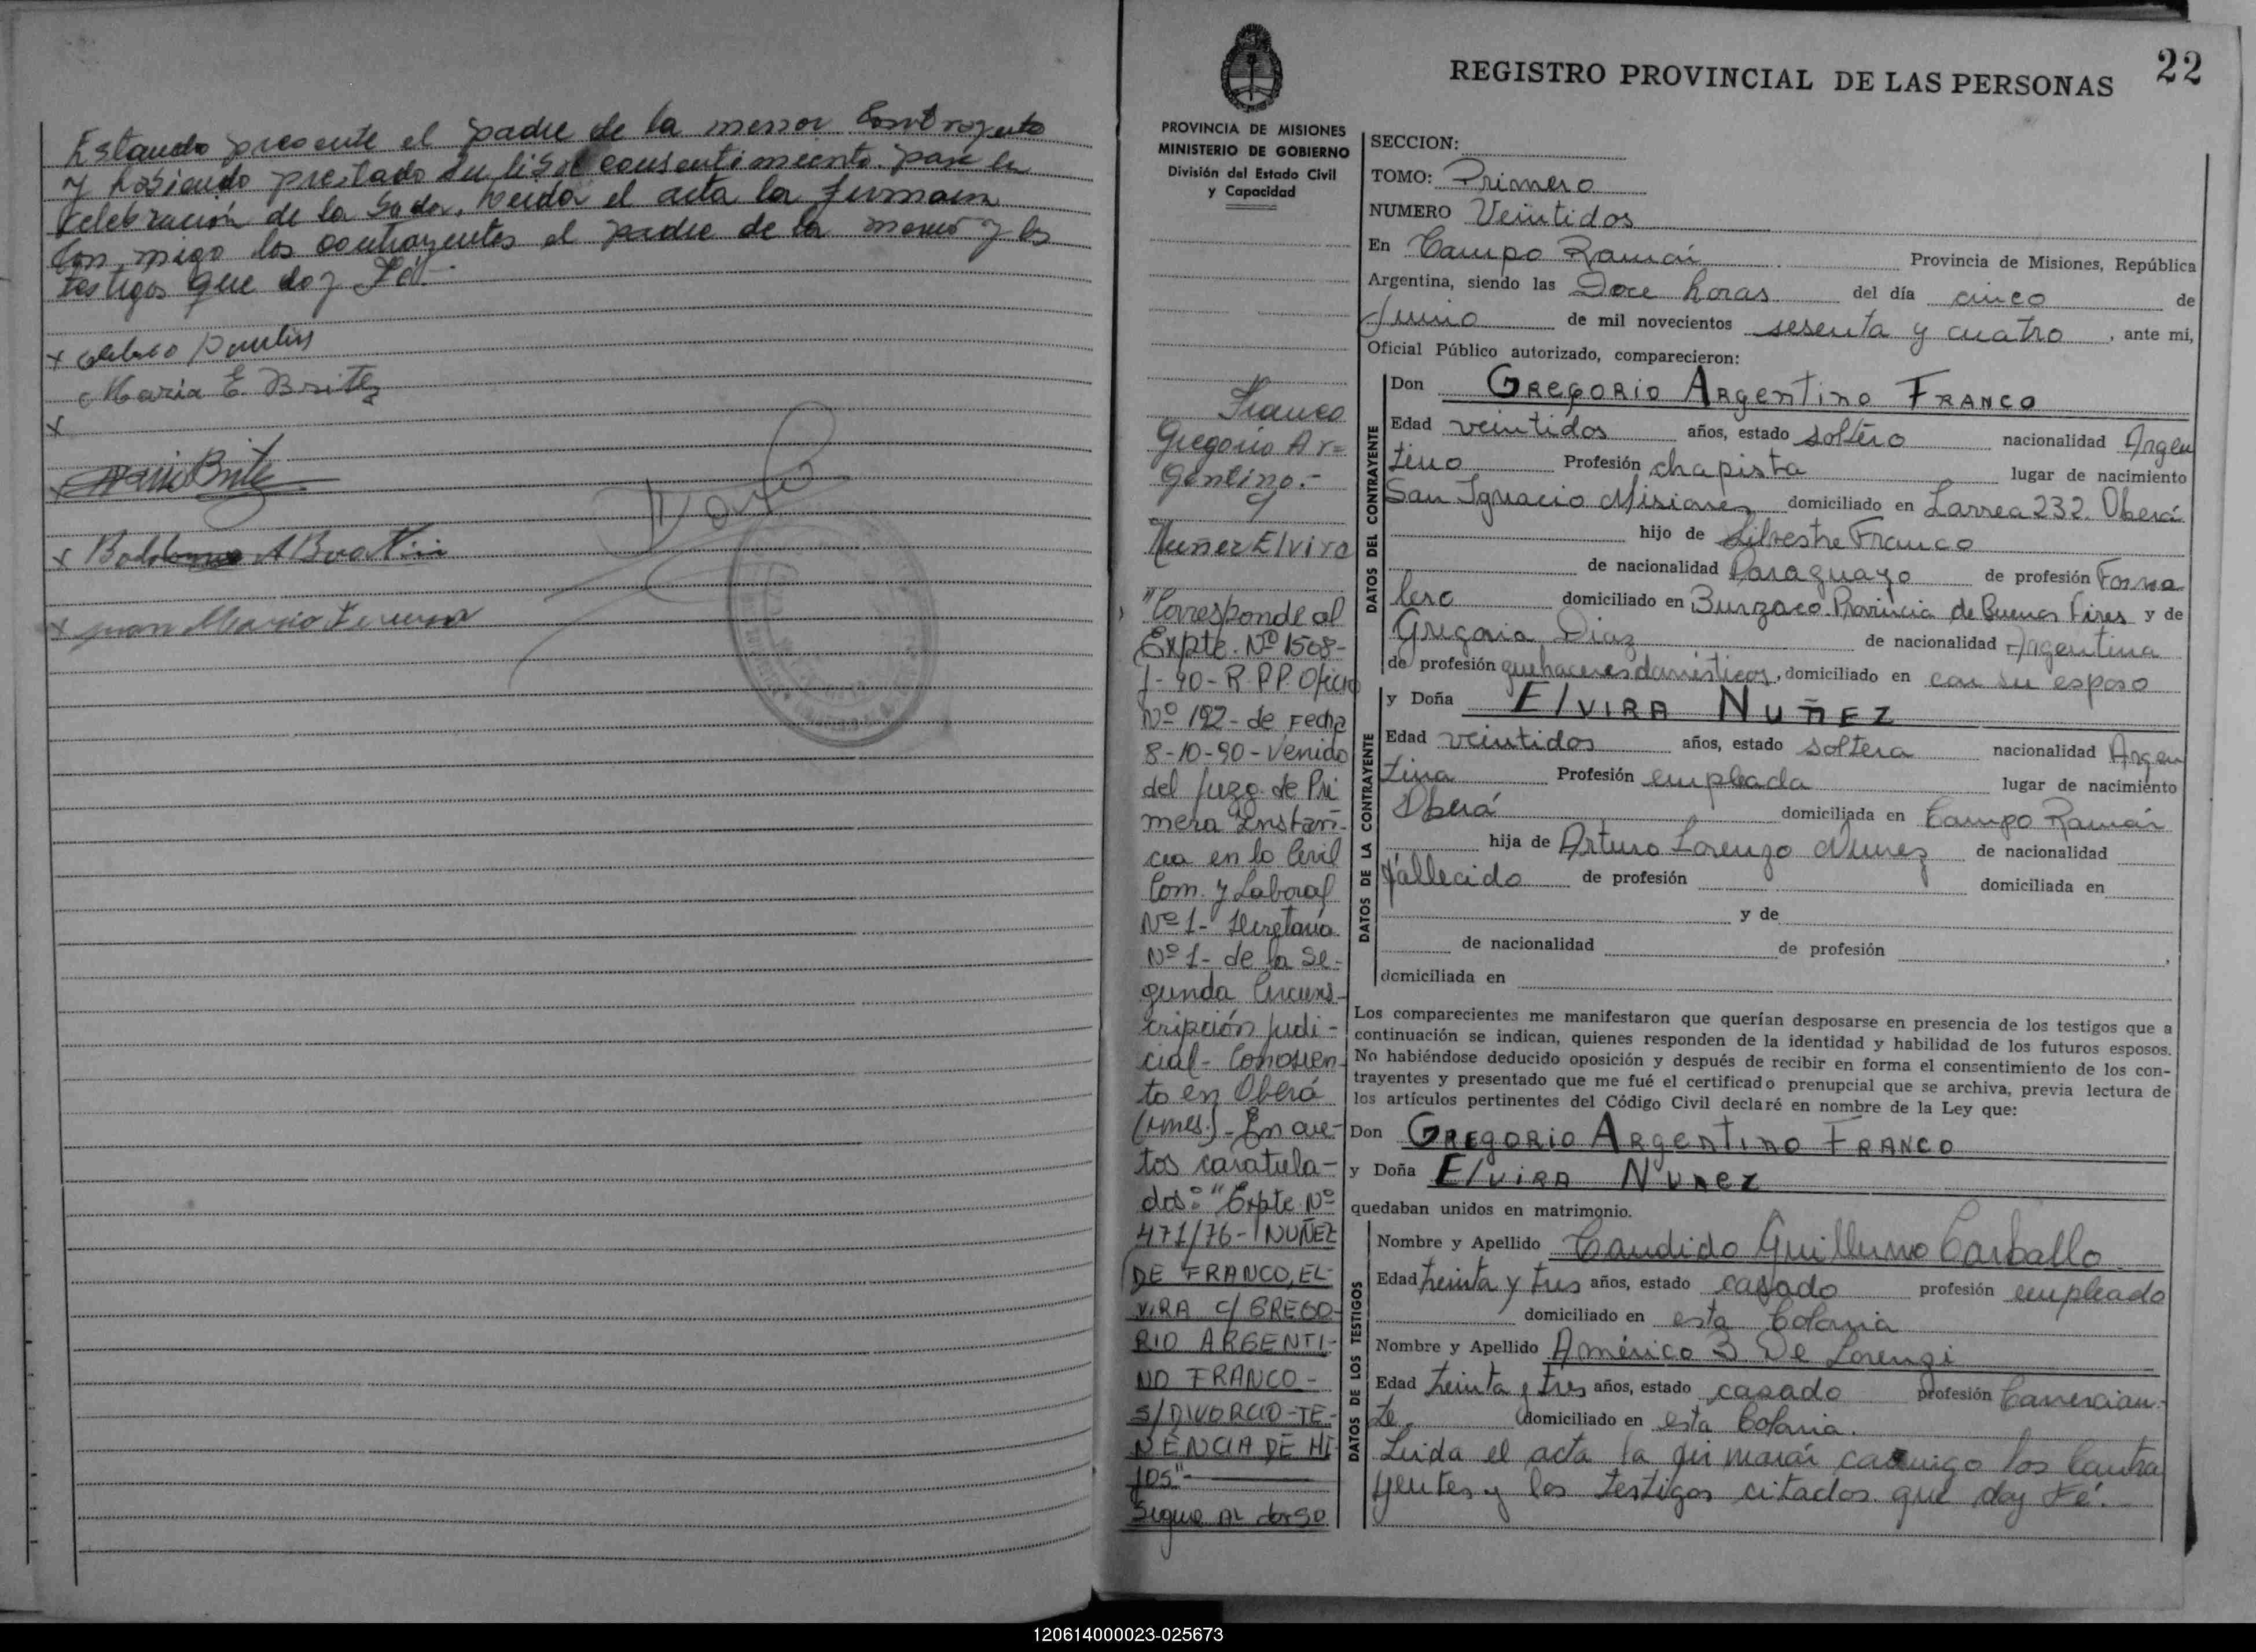 Estando presente el padre de la menor contrayente
y habiendo prestado su consentimiento para la
celebración de la boda, leida el acta la firman
con migo los contrayentes el padre de la menor y los
testigos que doy Fé.-
x
Maria E. Britez
x
x Mario Britez
x
x Juan Mario
22
REGISTRO PROVINCIAL DE LAS PERSONAS
PROVINCIA DE MISIONES
MINISTERIO DE GOBIERNO
División del Estado Civil
y Capacidad
Franco
Gregorio Ar=
gentino.-
y
Nuñez Elvira
"Corresponde al
Expte. Nº 1508-
J-90-R.P.P. Oficio
Nº 192- de Fecha
8-10-90- Venido
del Juzg. de Pri
mera Instan-
cia en lo Civil
Com. y Laboral
Nº 1- Secretaria
Nº 1- de la Se-
gunda Circuns-
cripción Judi-
cial- Conosien-
to en Oberá
(Mnes.)- En au-
tos caratula-
dos: "Expte. Nº
471/76- NUÑEZ
DE FRANCO, EL-
VIRA C/ GREGO-
RIO ARGENTI-
NO FRANCO-
S/DIVORCIO-TE-
NENCIA DE HI-
JOS"-
Sigue AL dorso
SECCION:
TOMO: Primero
NUMERO Veintidos
En Campo Ramón Provincia de Misiones, República
Argentina, siendo las Doce horas del día cinco de
Junio de mil novecientos sesenta y cuatro, ante mi,
Oficial Público autorizado, comparecieron:
DATOS DEL CONTRAYENTE
Don GREGORIO ARGENTINO FRANCO
Edad veintidos años, estado soltero nacionalidad Argen
tino Profesión chapista lugar de nacimiento
San Ignacio Misiones domiciliado en Larrea 232. Oberá
hijo de Silvestre Franco
de nacionalidad Paraguayo de profesión Jorna
lero domiciliado en Burzaco. Provincia de Buenos Aires y de
Gregoria Diaz de nacionalidad Argentina
de profesión quehaceres domésticos, domiciliado en con su esposo
DATOS DE LA CONTRAYENTE
y Doña ELVIRA NUÑEZ
Edad veintidos años, estado soltera nacionalidad Argen
tina Profesión empleada lugar de nacimiento
Oberá domiciliada en Campo Ramón
hija de Arturo Lorenzo Nunez de nacionalidad
fallecido de profesión domiciliada en
y de
de nacionalidad de profesión ,
domiciliada en
Los comparecientes me manifestaron que querían desposarse en presencia de los testigos que a
continuación se indican, quienes responden de la identidad y habilidad de los futuros esposos.
No habiéndose deducido oposición y después de recibir en forma el consentimiento de los con-
trayentes y presentado que me fué el certificado prenupcial que se archiva, previa lectura de
los artículos pertinentes del Código Civil declaré en nombre de la Ley que:
Don GREGORIO ARGENTINO FRANCO
y Doña ELVIRA NUNEZ
quedaban unidos en matrimonio.
DATOS DE LOS TESTIGOS
Nombre y Apellido Candido Guillermo Carballo
Edad treinta y tres años, estado casado profesión empleado
domiciliado en esta Colonia
Nombre y Apellido Américo B De Lorenzi
Edad treinta y tres años, estado casado profesión Comercian-
te. domiciliado en esta Colonia.
Leida el acta la firmarán conmigo los Contra
yentes y los testigos citados que doy Fé.-
120614000023-025673